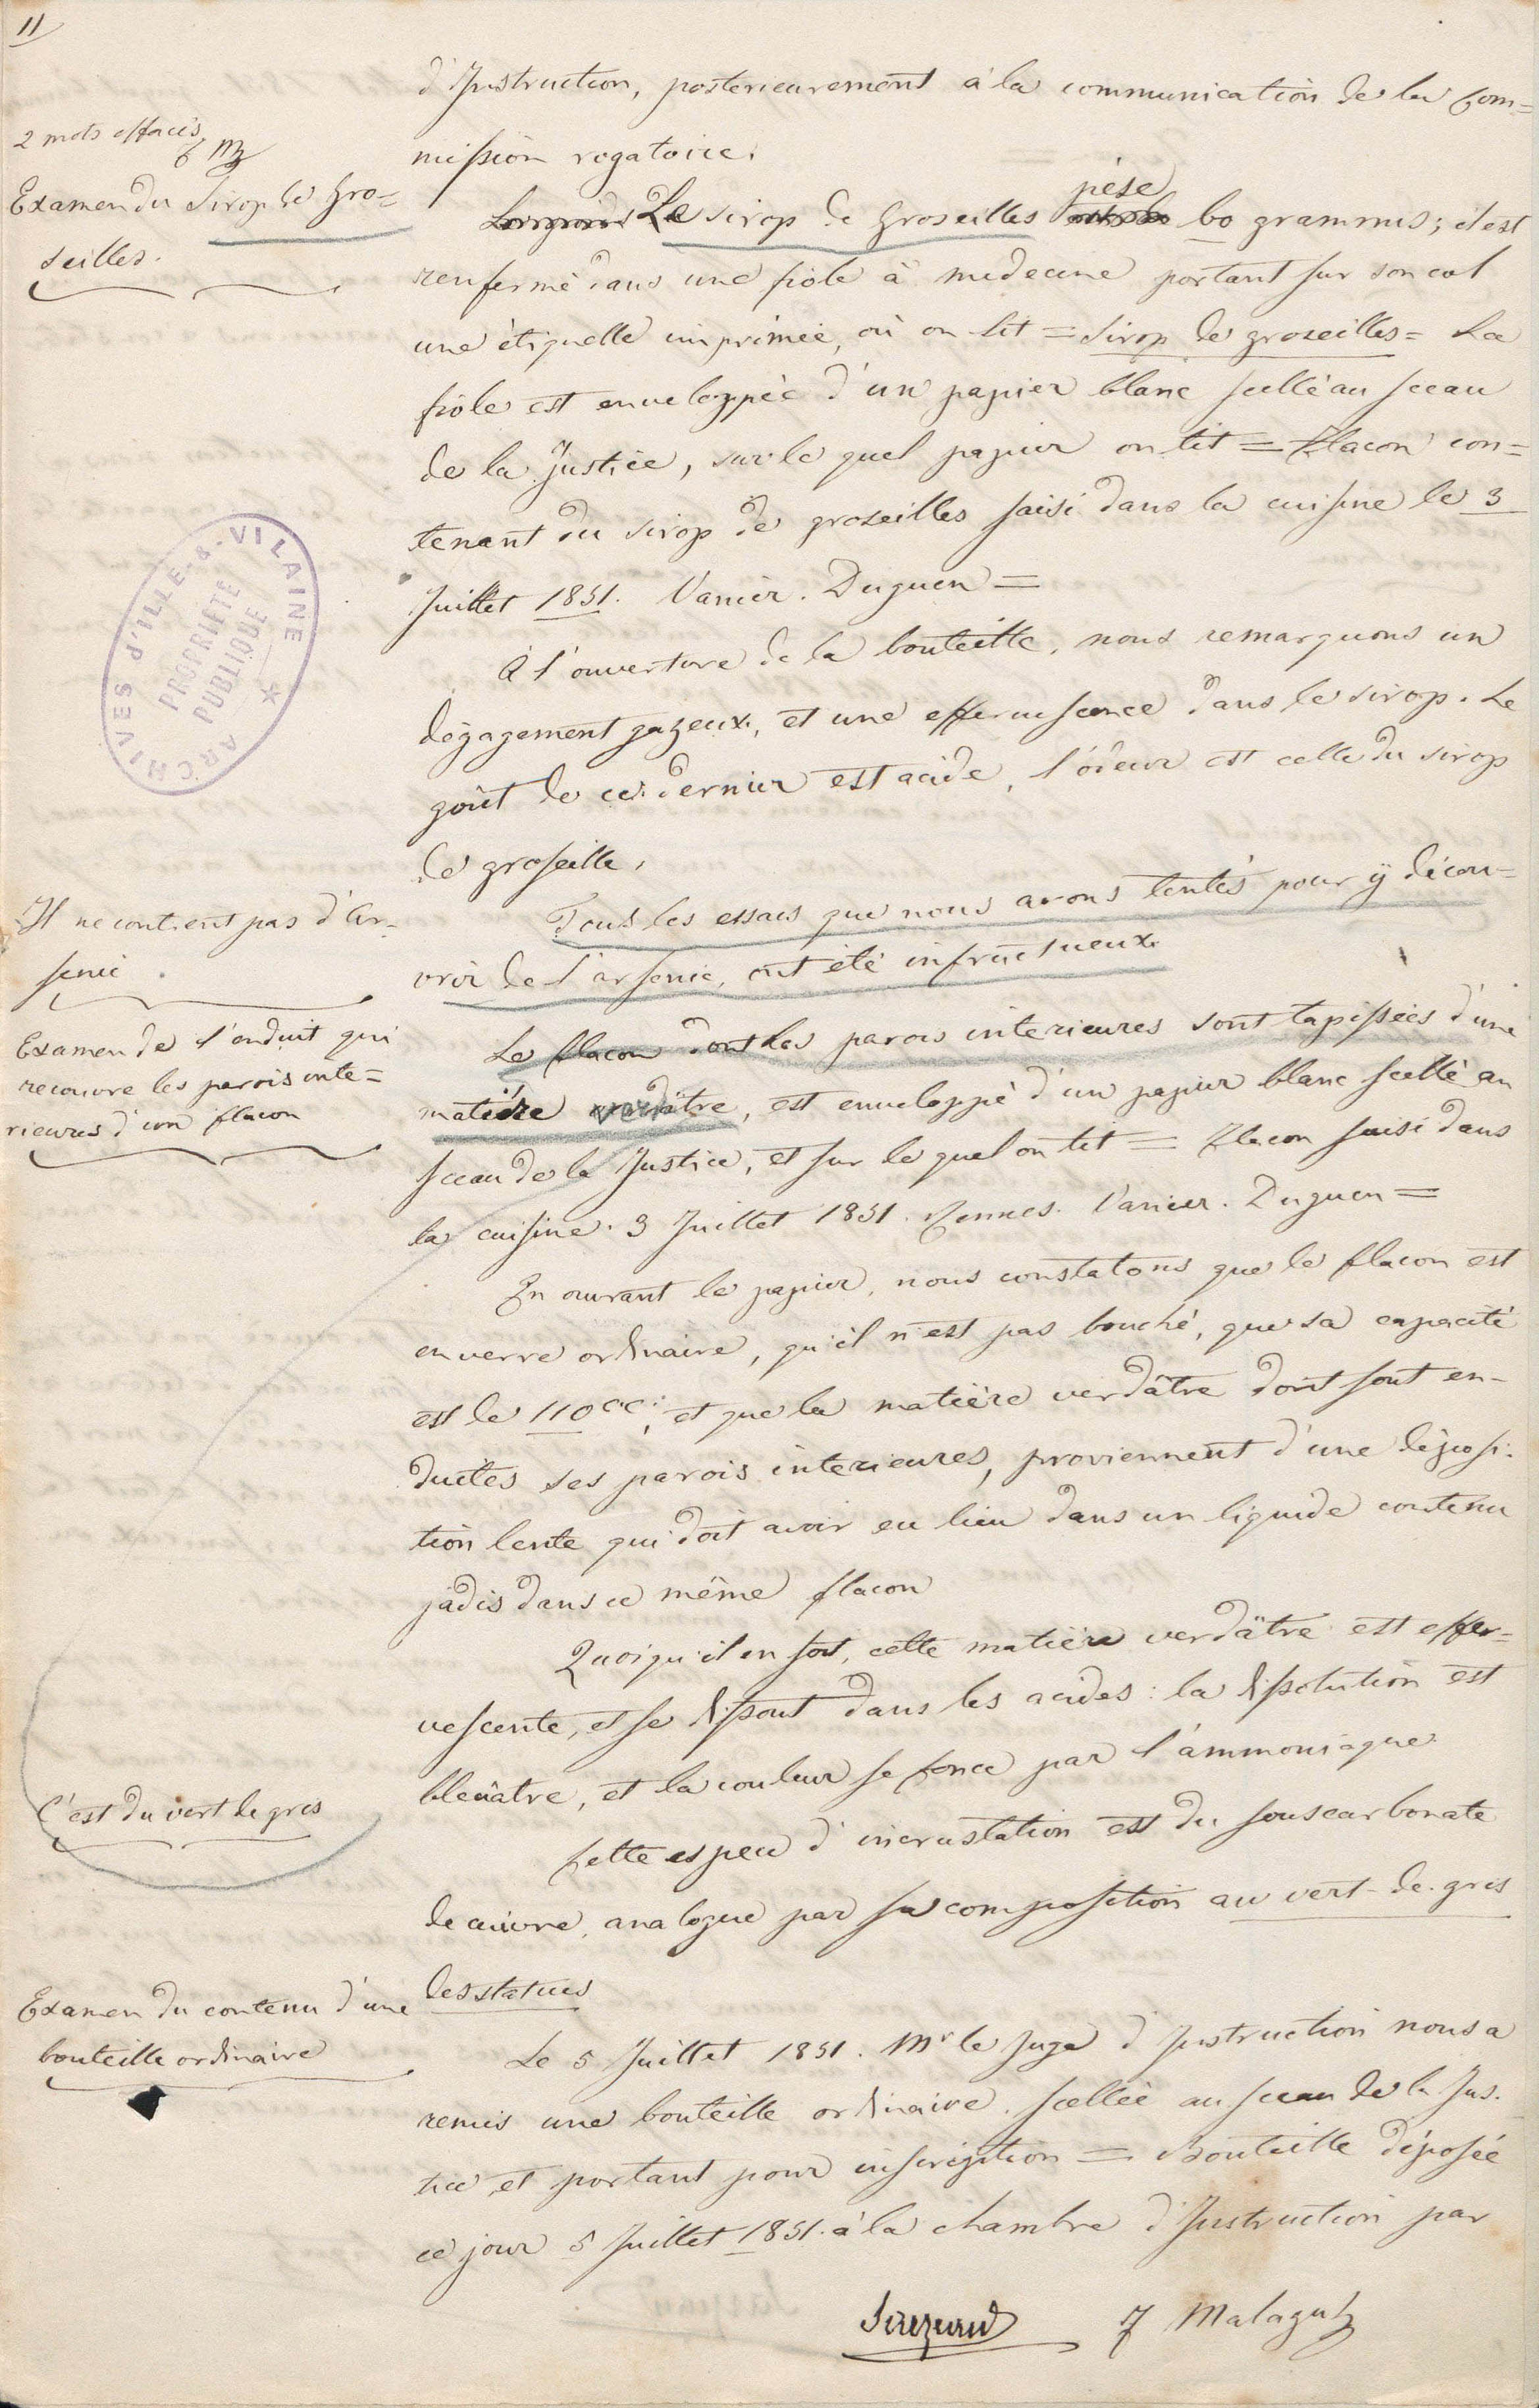 11
d'Instruction, posterieurement à la communication de la Com=
mission rogatoire.
2 mots effacés
Examen du Sirop de Gro=
seilles.
Le sirop de Groseilles pèse 60 grammes; il est
renfermé dans une fiole à medecine portant sur son col
une étiquette imprimée, où on lit = Sirop de groseilles = La
fiole est enveloppée d'un papier blanc scellé au sceau
de la Justice, sur le quel papier on lit = Flacon con=
tenant du sirop de groseilles saisi dans la cuisine le 3
Juillet 1851. Vanier. Duguen =
ARCHIVES D'ILLE-&-VILAINE
PROPRIÉTÉ
PUBLIQUE
À l'ouverture de la bouteille, nous remarquons un
dégagement gazeux, et une effervescence dans le sirop. Le
goût de ce dernier est acide, l'odeur est celle du sirop
de groseille.
Il ne contient pas d'ar-
senic
Tous les essais que nous avons tentés pour y décou=
vrir de l'arsenic, ont été infructueux.
Examen de l'enduit qui
recouvre les parois inte=
rieures d'un flacon
Le flacon dont les parois interieures sont tapissées d'une
matière verdâtre, est enveloppé d'un papier blanc scellé au
sceau de la Justice, et sur le quel on lit = Flacon saisi dans
la cuisine. 3 Juillet 1851. Rennes. Vanier. Duguen =
En ouvrant le papier, nous constatons que le flacon est
en verre ordinaire, qu'il n'est pas bouché, que sa capacité
est de 110cc; et que la matière verdâtre dont sont en-
duites ses parois interieures, proviennent d'une déposi-
tion lente qui doit avoir eu lieu dans un liquide contenu
jadis dans ce même flacon
Quoiqu'il en soit, cette matière verdâtre est effer=
vescente, et se dissout dans les acides: la dissolution est
bleuâtre, et la couleur se fonce par l'ammoniaque
C'est du vert de gris
Cette espece d'incrustation est du souscarbonate
de cuivre, analogue par sa composition au vert-de-gris
des statues
Examen du contenu d'une
bouteille ordinaire
Le 5 Juillet 1851. Mr le Juge d'Instruction nous a
remis une bouteille ordinaire, scellée au sceau de la Jus-
tice et portant pour inscription = Bouteille déposée
ce jour 5 Juillet 1851. à la chambre d'Instruction par
F Malaguti